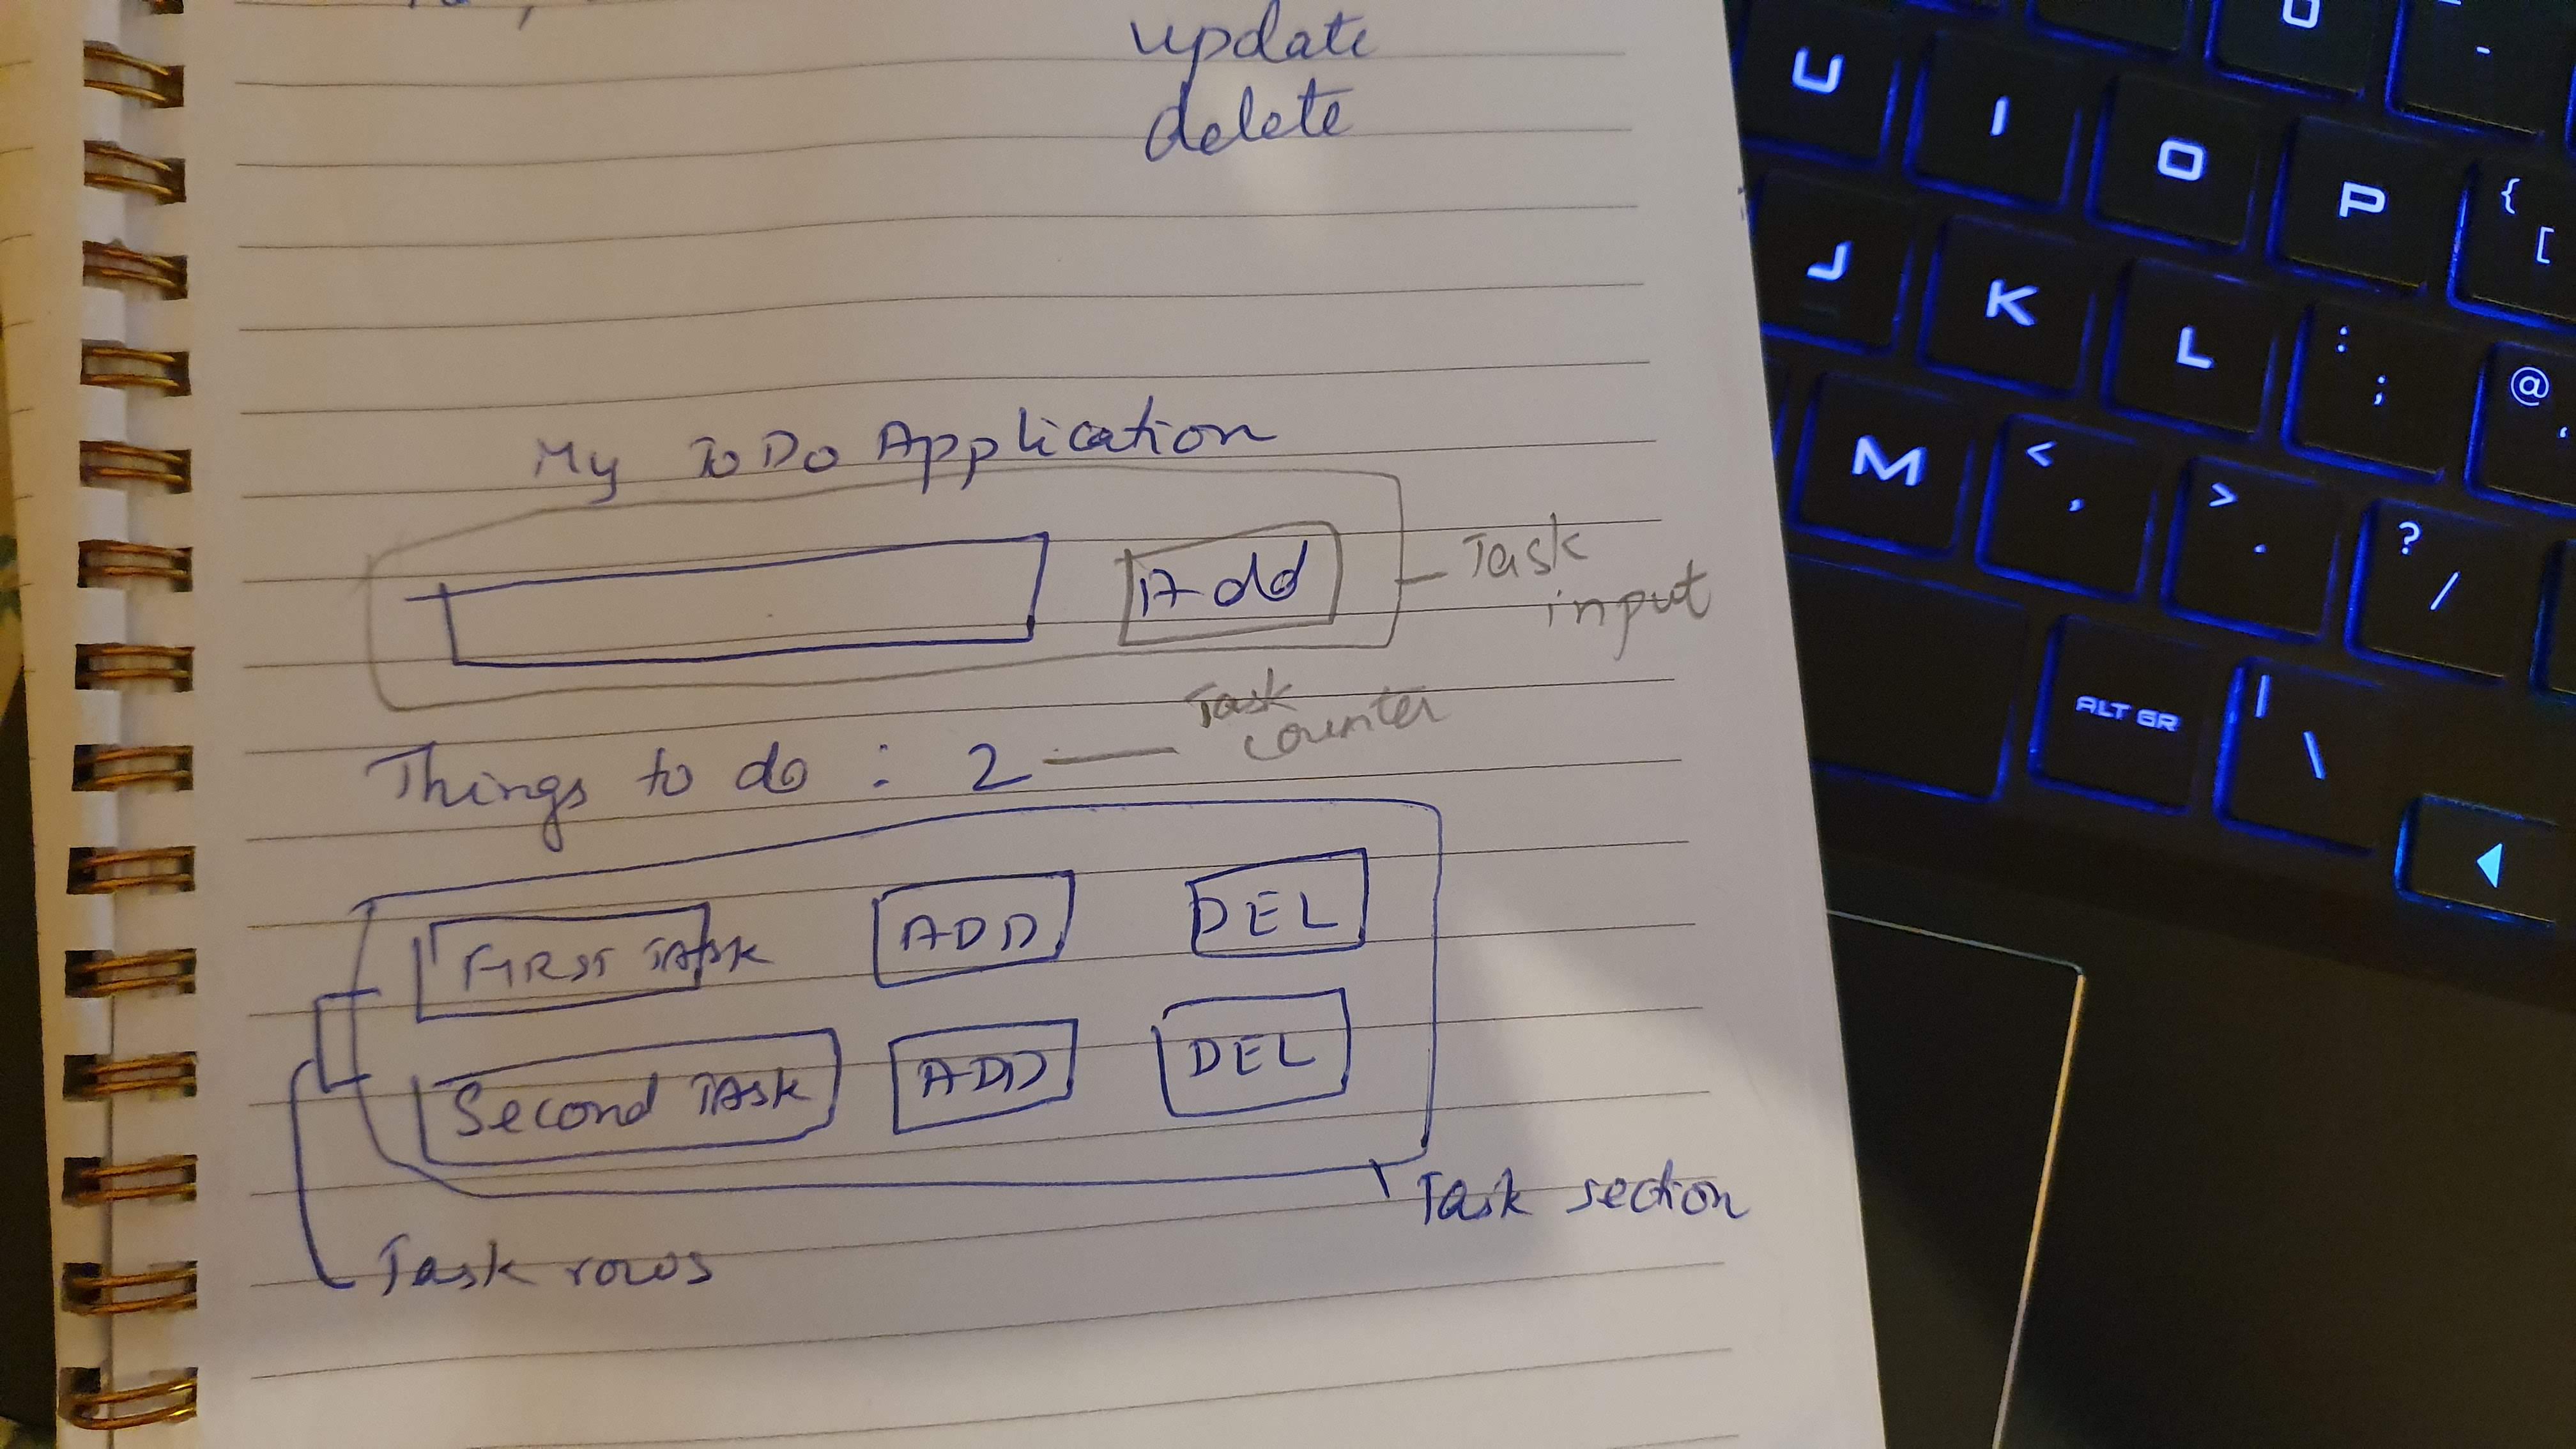 update
delete
My To Do Application
Add
Task
input
Things to do : 2
Task
counter
FIRST TASK ADD DEL
Second TASK ADD DEL
Task section
Task rows
U I O P { [
J K L : ; @ '
M < , > . ? /
ALT GR | \